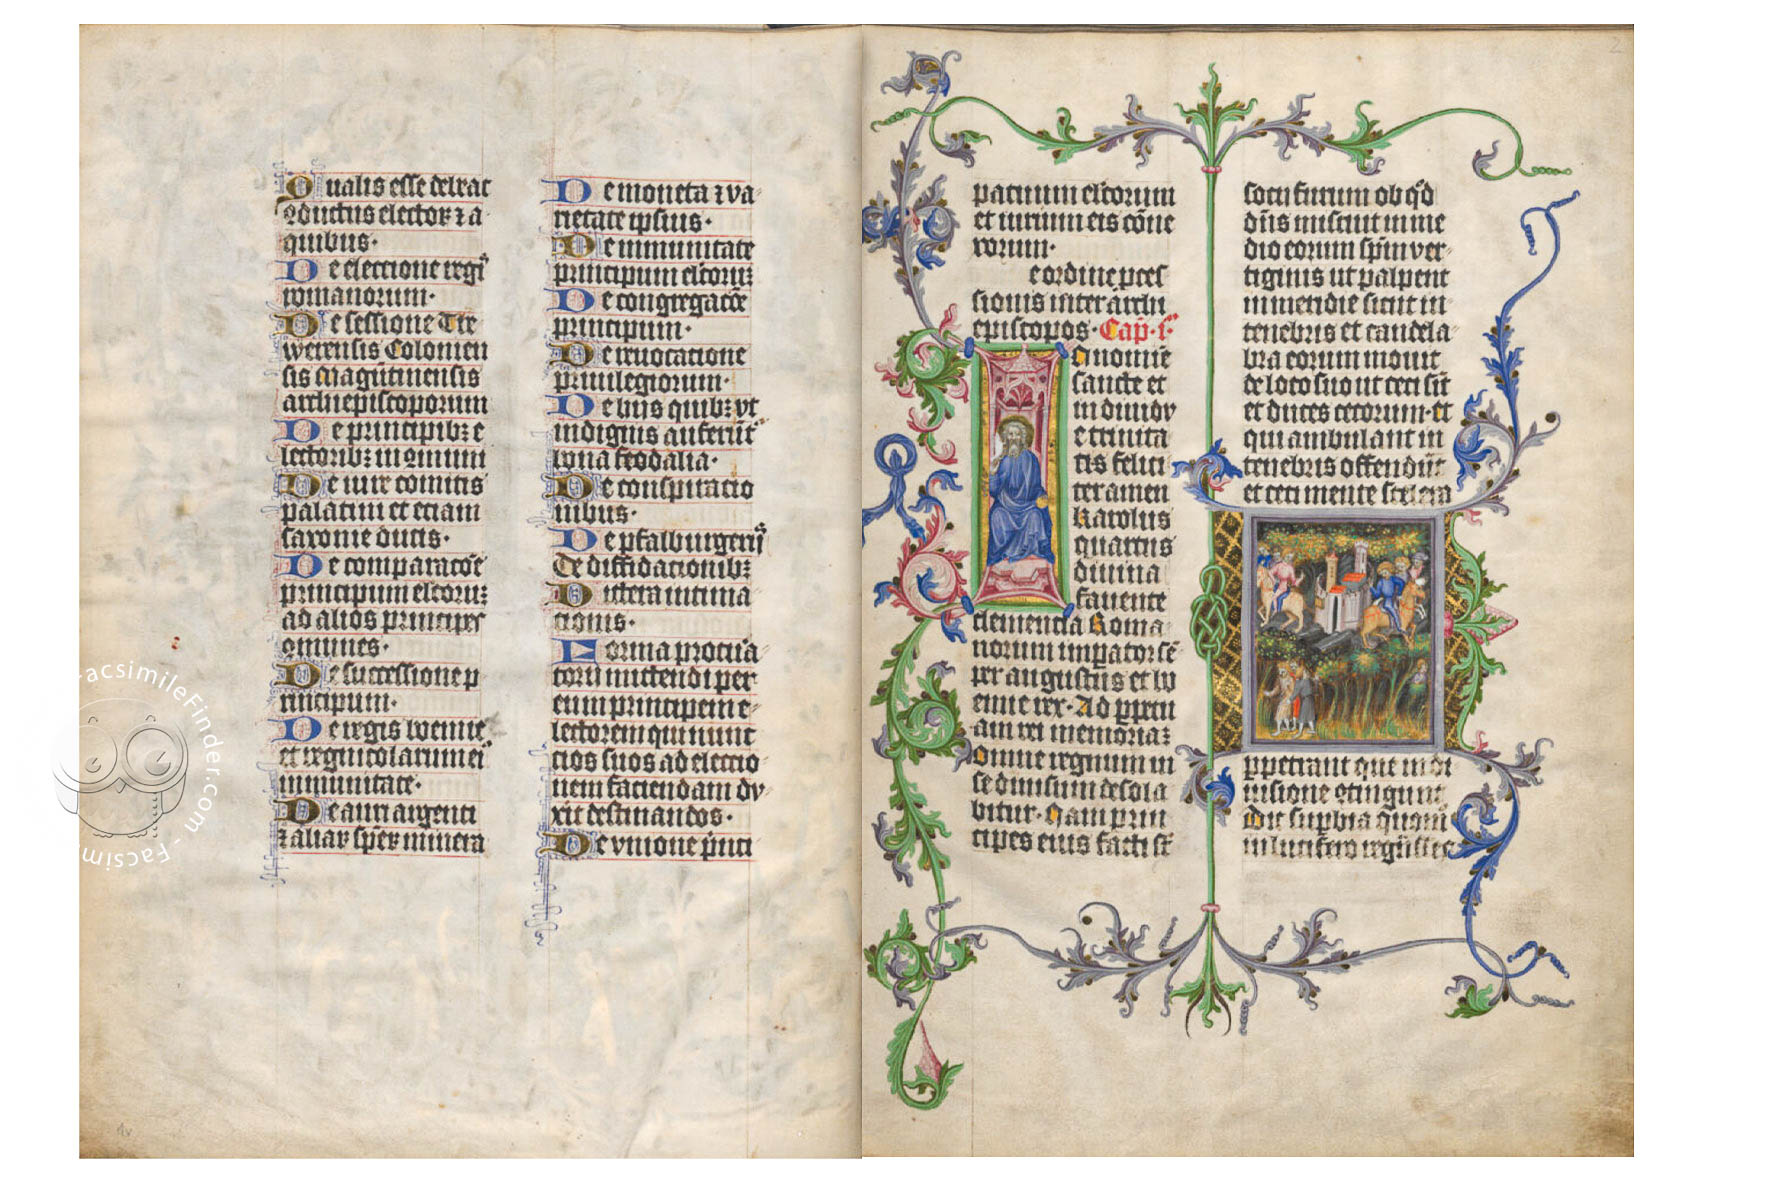 Qualis esse debeat
⁊ductus elector⁊ ⁊ a
quibus·
De eleccione regꝭ
romanorum·
De sessione Tre
werensis Colonien
sis Maguntinensis
archiepiscoporum
De principibꝫ e
lectoribꝫ in cōmuni
De iure comitis
palatini et eciam
saxonie ducis·
De comparacōe
principum elcōrꝫ
ad alios principes
omnes·
De successione p
rincipum·
De regis boemie
et regnicolarum eiꝰ
inmunitate·
De auri argenti
⁊ aliar sp̄er minera
De moneta ⁊ va
rietate ipsius·
De inmunitate
principum elcōrꝫ
De congregacōe
principum·
De reuocatione
priuilegiorum·
De hiis quibꝫ vt
indignis auferūt᷑
bona feodalia·
De conspiracio
nibus·
De pfalburgerijs
De diffidacionibꝫ
Littera intima
cionis·
Forma procura
torij mittendi per
eum principem e
lectorem qui nunc
cios suos ad eleccio
nem faciendam du
xit destinandos·
De vnione pinci
patuum elcōrum
et iurium eis cōne
xorum·
e ordine ꝓces
sionis inter archi
episcopos· Cap̄·i·ᵐ
In nomine
sancte et
indiuidu
e trinita
tis felici
ter amen
Karolus
quartus
diuina
fauente
clemencia Roma
norum imꝑator sē
per augustus et bo
emie rex· Ad ꝑpetu
am rei memoriaꝫ
Omne regnum in
se diuisum desola
bitur· Nam prin
cipes eius facti st̄
socij furum ob qd̄
dn̄s miscuit in me
dio eorum spm̄ ver
tiginis ut palpent
in meridie sicut in
tenebris et candela
bra eorum mouit
de loco suo ut ceci sīt
et duces cecorum· et
qui ambulant in
tenebris offendūt
et ceci mente scelera
ꝑpetrant que in di
uisione ⁊tingunt
Dic supbia quom̄
in lucifero regnasses
2
1v
FacsimileFinder.com - Facsimi